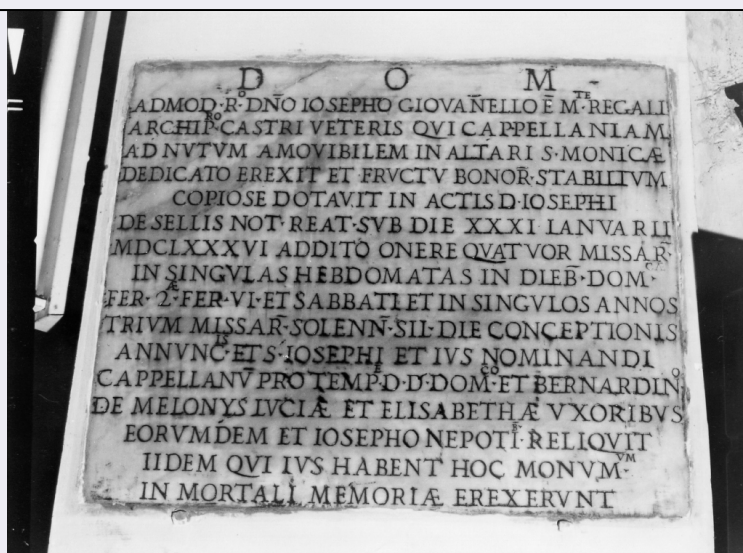 D O M
ADMOD·R·ᴰDÑO IOSEPHO GIOVAÑELLO Ē M·ᵀᴱ REGALI
ARCHIPᴿᴼ·CASTRI VETERIS QVI CAPPELLANIAM
AD NVTVM AMOVIBILEM IN ALTARI S·MONICÆ
DEDICATO EREXIT ET FRVCTV BONOR̃·STABILIVM
COPIOSE DOTAVIT IN ACTIS D·IOSEPHI
DE SELLIS NOT·REAT·SVB DIE XXXI IANVARII
MDCLXXXVI ADDITO ONERE QVATVOR MISSAR̃·
IN SINGVLAS HEBDOMATAS IN DIEB̃·DOM·ᶜᴵˢ
FER·2ᴭ·FER·VI·ET SABBATI ET IN SINGVLOS ANNOS
TRIVM MISSAR̃·SOLENÑ·SIL·DIE CONCEPTIONIS
ANNVNCᴵˢ·ET S·IOSEPHI ET IVS NOMINANDI
CAPPELLANV̄ PRO TEMPᴱ·D·D·DOMᶜᴼ·ET BERNARDINᴼ
DE MELONYS LVCIÆ ET ELISABETHÆ VXORIBVS
EORVMDEM ET IOSEPHO NEPOTI·RELIQVIT
IIDEM QVI IVS HABENT HOC MONVMᵛᴹ·
IN MORTALI MEMORIÆ EREXERVNT